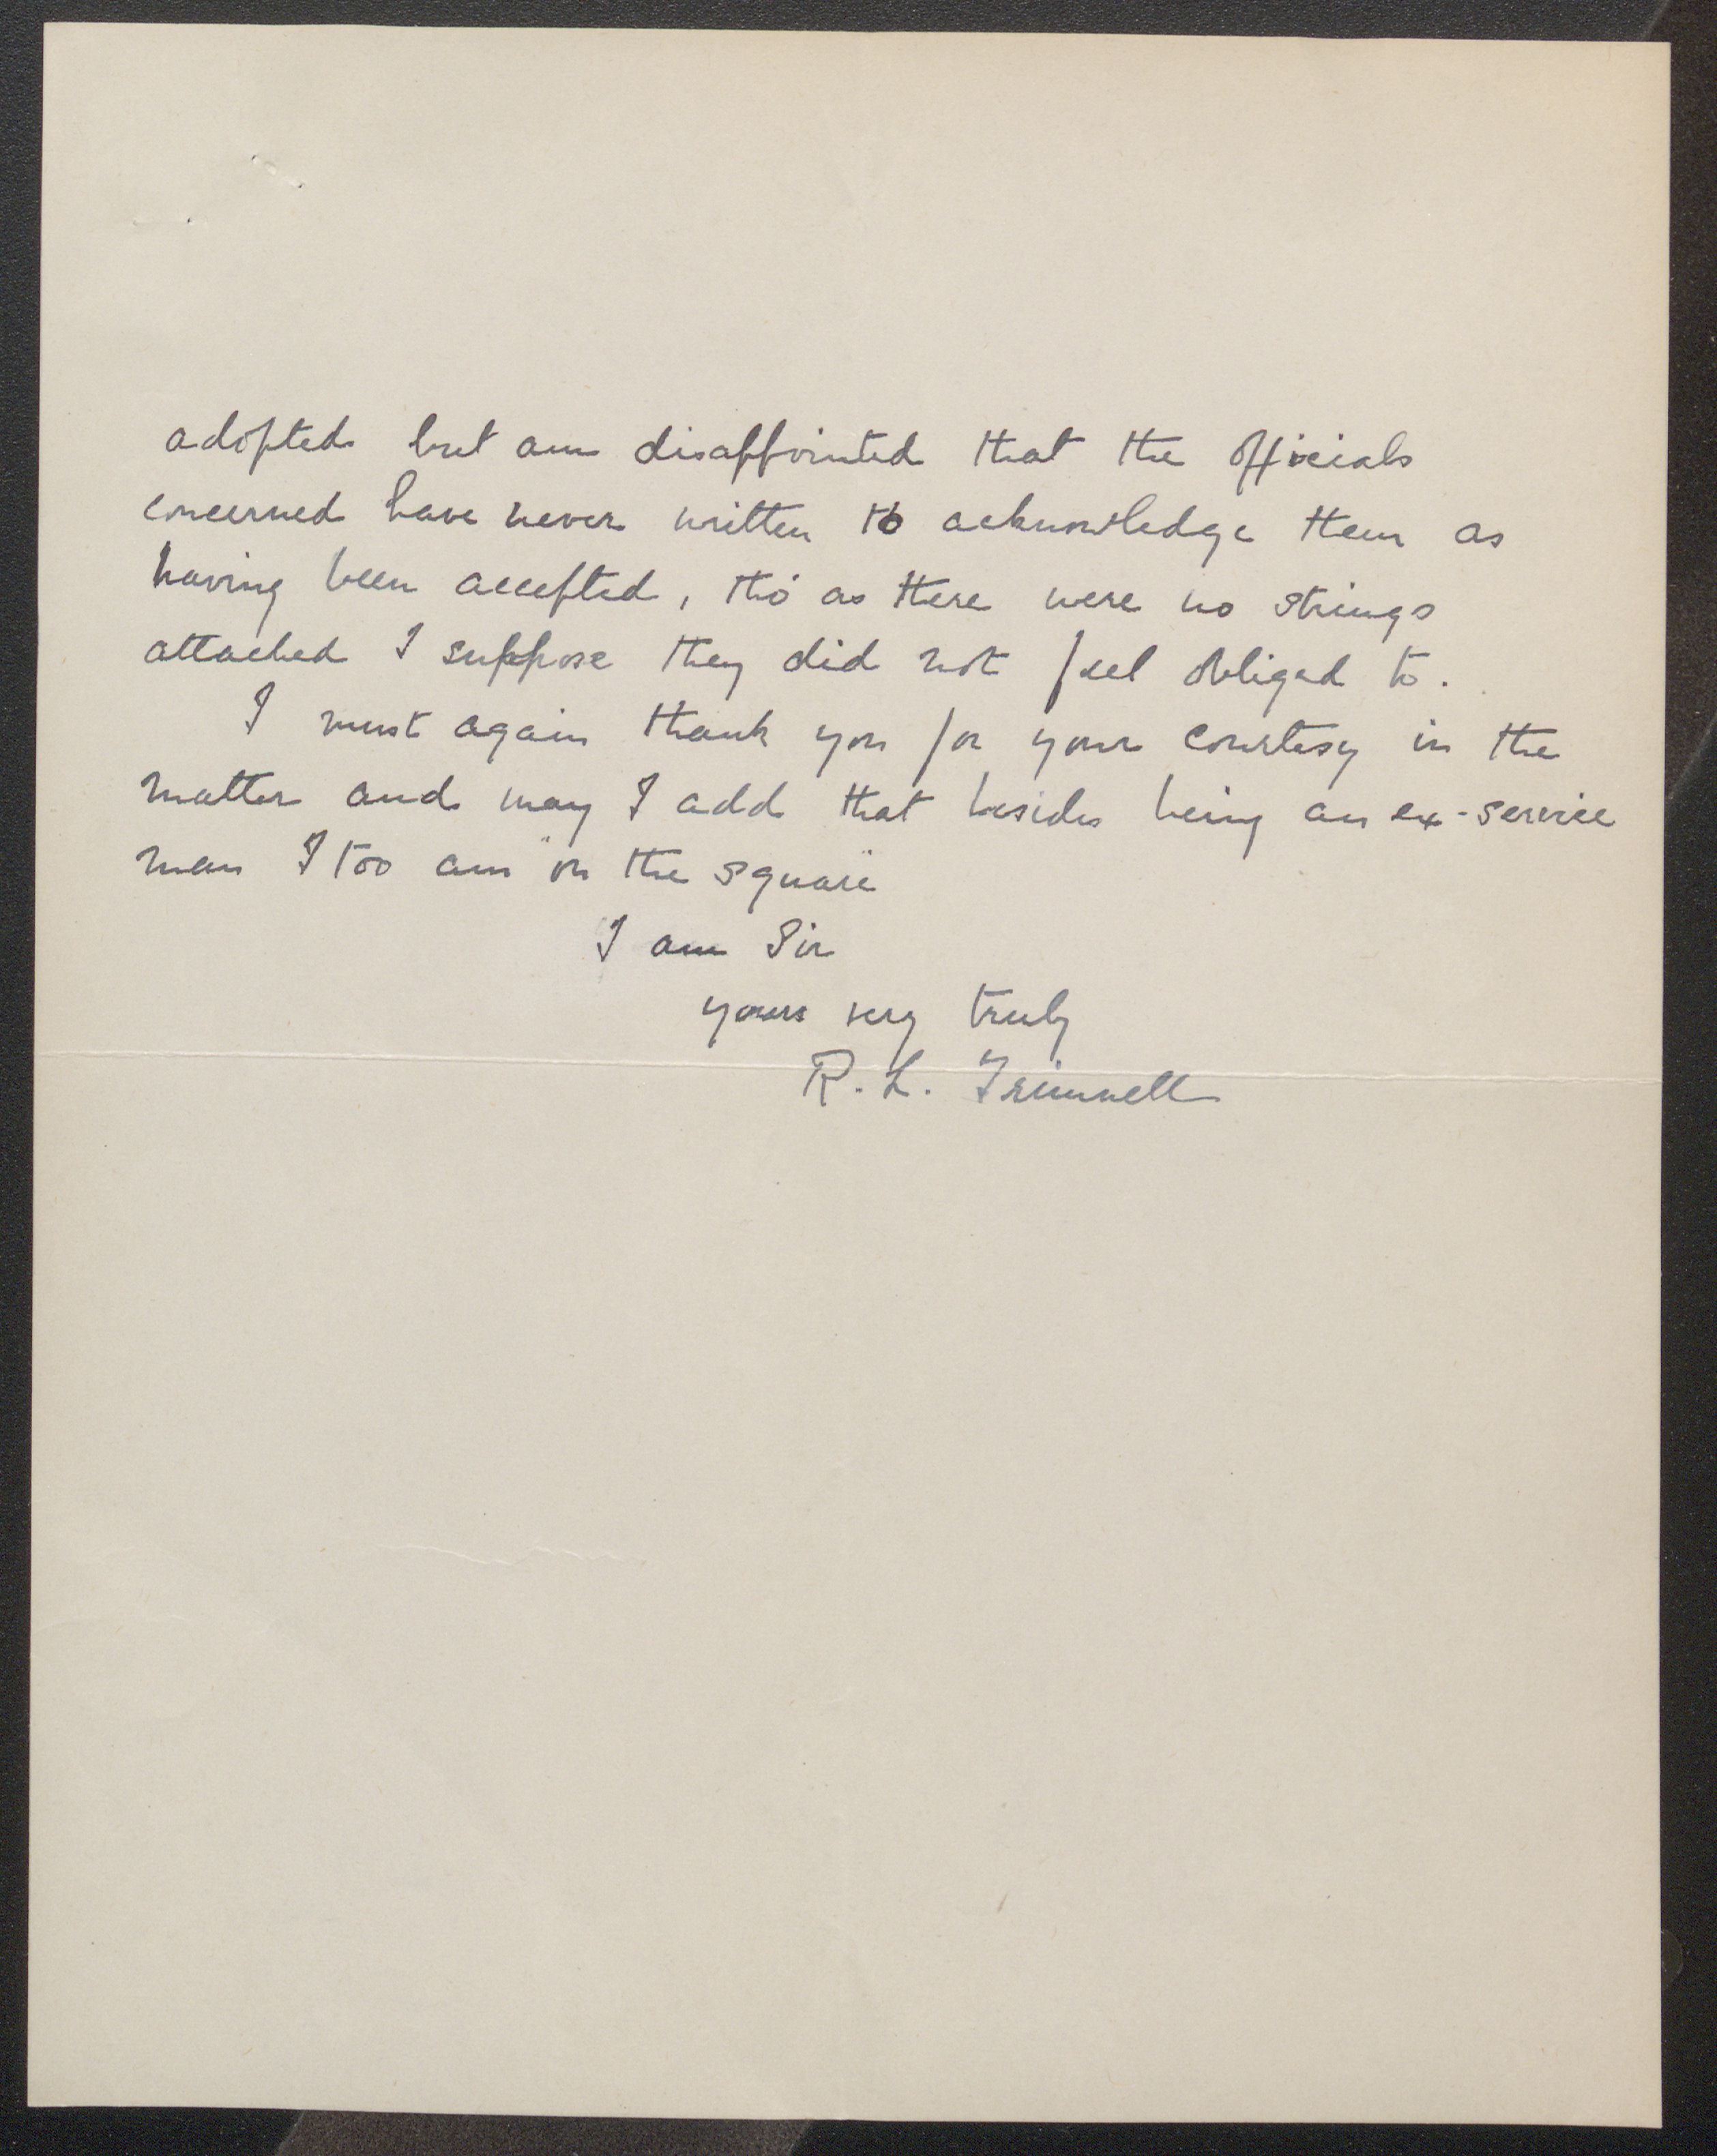 adopted but am disappointed that the officials
concerned have never written to acknowledge them as
having been accepted, tho' as there were no strings
attached I suppose they did not feel obliged to.
I must again thank you for your courtesy in the
matter and may I add that besides being an ex-service
man I too am "on the square"
I am Sir
yours very truly
R. L. Trimnell